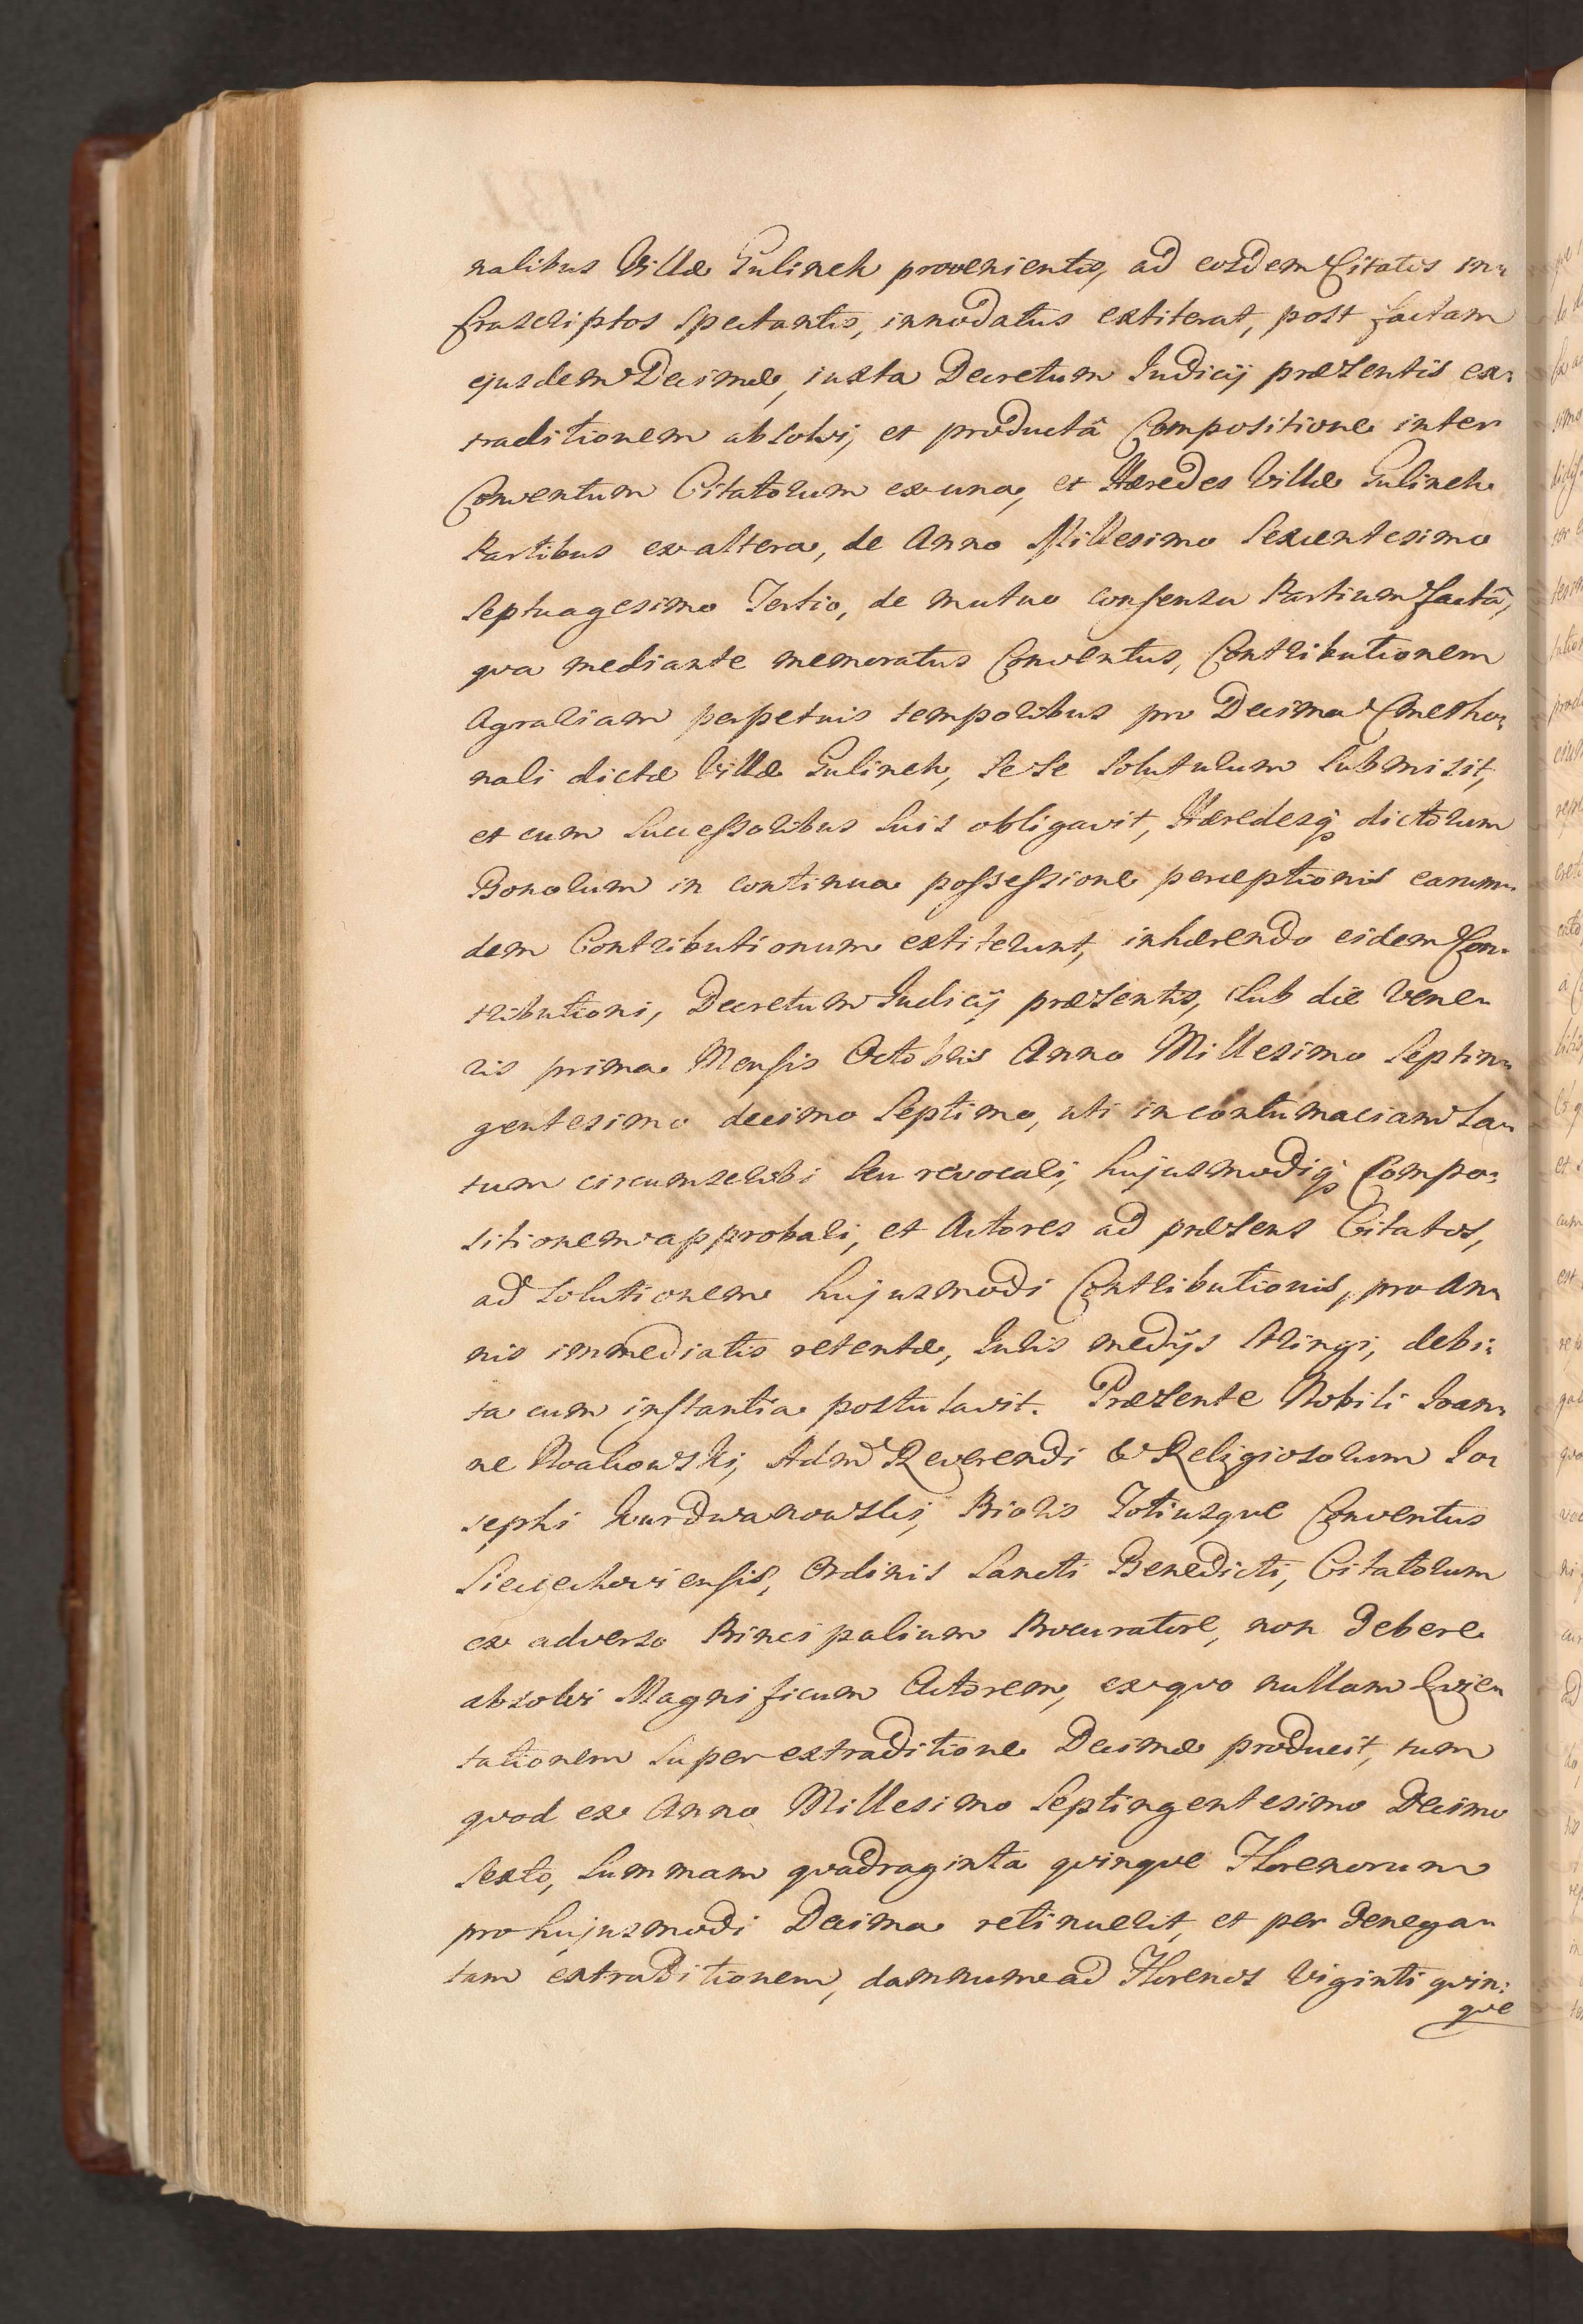 nalibus Villæ Gulinek provenientis, ad eosdem Citatos in=
frascriptos spectantis, innodatus extiterat, post factam
ejusdem Decimæ, iuxta Decretum Judicij præsentis ex=
traditionem absolvi, et productâ Compositione inter
Conventum Citatorum ex una, et Hæredes Villæ Gulinek
Partibus ex altera, de Anno Millesimo Sexcentesimo
Septuagesimo Tertio, de mutuo consensu Partium factâ,
qva mediante memoratus Conventus, Contributionem
Agrariam perpetuis temporibus pro Decima Cmetho=
nali dictæ Villæ Gulinek, sese soluturum submisit,
et cum Successoribus suis obligavit, Hæredesq3 dictorum
Bonorum in continua possessione perceptionis earum=
dem Contributionum extiterunt, inhærendo eidem Con=
tributioni, Decretum Judicij præsentis, sub die Vene=
ris prima Mensis Octobris Anno Millesimo Septin=
gentesimo decimo Septimo, uti in contumaciam la=
tum circumscribi seu revocari, hujusmodiq3 Compo=
sitionem approbari, et Actores ad præsens Citatos,
ad solutionem hujusmodi Contributionis, pro An=
nis immediatis retentæ, Juris medijs stringi, debi=
ta cum instantia postulavit. Præsente Nobili Joan=
ne Roakowski, Adm Reverendi & Religiosorum Jo=
sephi Kurdwanowski, Prioris Totiusqve Conventus
Sieciechoviensis, Ordinis Sancti Benedicti, Citatorum
ex adverso Principalium Procuratore, non debere
absolvi Magnificum Actorem, ex qvo nullam Qvie=
tationem super extraditione Decimæ producit, tum
qvod ex Anno Millesimo Septingentesimo Decimo
Sexto, Summam qvadraginta qvinqve Florenorum
pro hujusmodi Decima retinuerit, et per denega=
tam extraditionem, damnum ad Florenos Viginti qvin=
qve